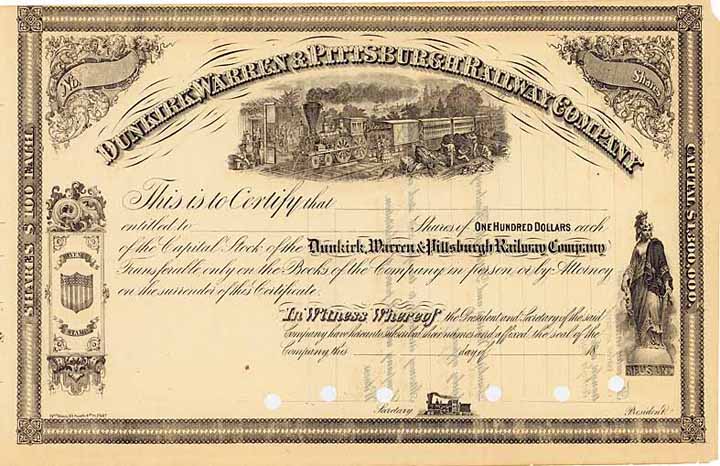 No.
Shares
DUNKIRK, WARREN & PITTSBURGH RAILWAY COMPANY
SHARES $100 EACH
CAPITAL $1,300,000.
This is to Certify that
entitled to Shares of ONE HUNDRED DOLLARS each
of the Capital Stock of the Dunkirk, Warren & Pittsburgh Railway Company
Transferable only on the Books of the Company in person or by Attorney
on the surrender of this Certificate.
In Witness Whereof the President and Secretary of the said
Company have hereunto subscribed their names and affixed the seal of the
Company this day of 18
Secretary
President